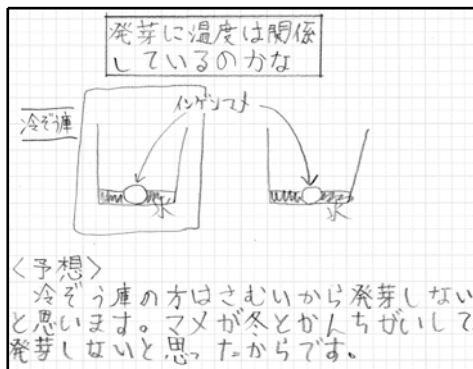 発芽に温度は関係
しているのかな
インゲンマメ
冷ぞう庫
水
水
<予想>
冷ぞう庫の方はさむいから発芽しない
と思います。マメが冬とかんちがいして
発芽しないと思ったからです。